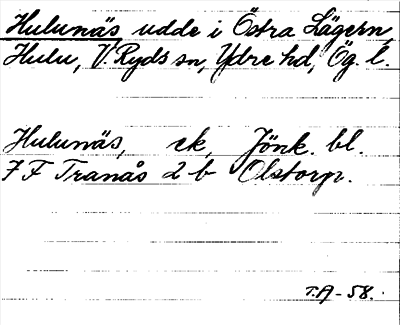 Hulunäs udde i Östra Lägern,
Hulu, V. Ryds sn, Ydre hd, Ög. l.
Hulunäs, ek, Jönk. bl.
7 F Tranås 2 b Olstorp.
T.A - 58.